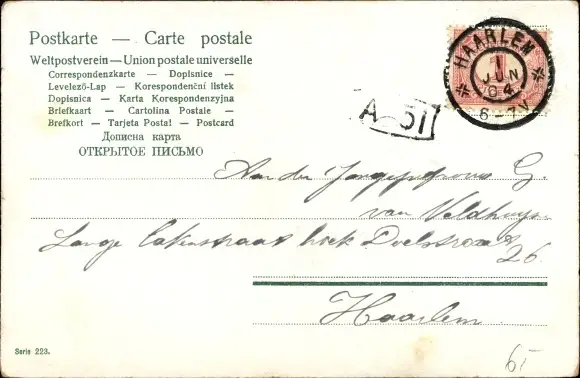 Postkarte — Carte postale
Weltpostverein — Union postale universelle
Correspondenzkarte — Dopisnice —
Levelező-Lap — Korespondenční lístek
Dopisnica — Karta Korespondenzyjna
Briefkaart — Cartolina Postale —
Brefkort — Tarjeta Postal — Postcard
Дописна карта
ОТКРЫТОЕ ПИСЬМО
HAARLEM
1 JUN 04
6-7V
A 51
Aan de Jongejufvrouw G.
van Veldhuyzen
Lange Lakenstraat hoek Doelstraat
26
Haarlem
Serie 223.
65